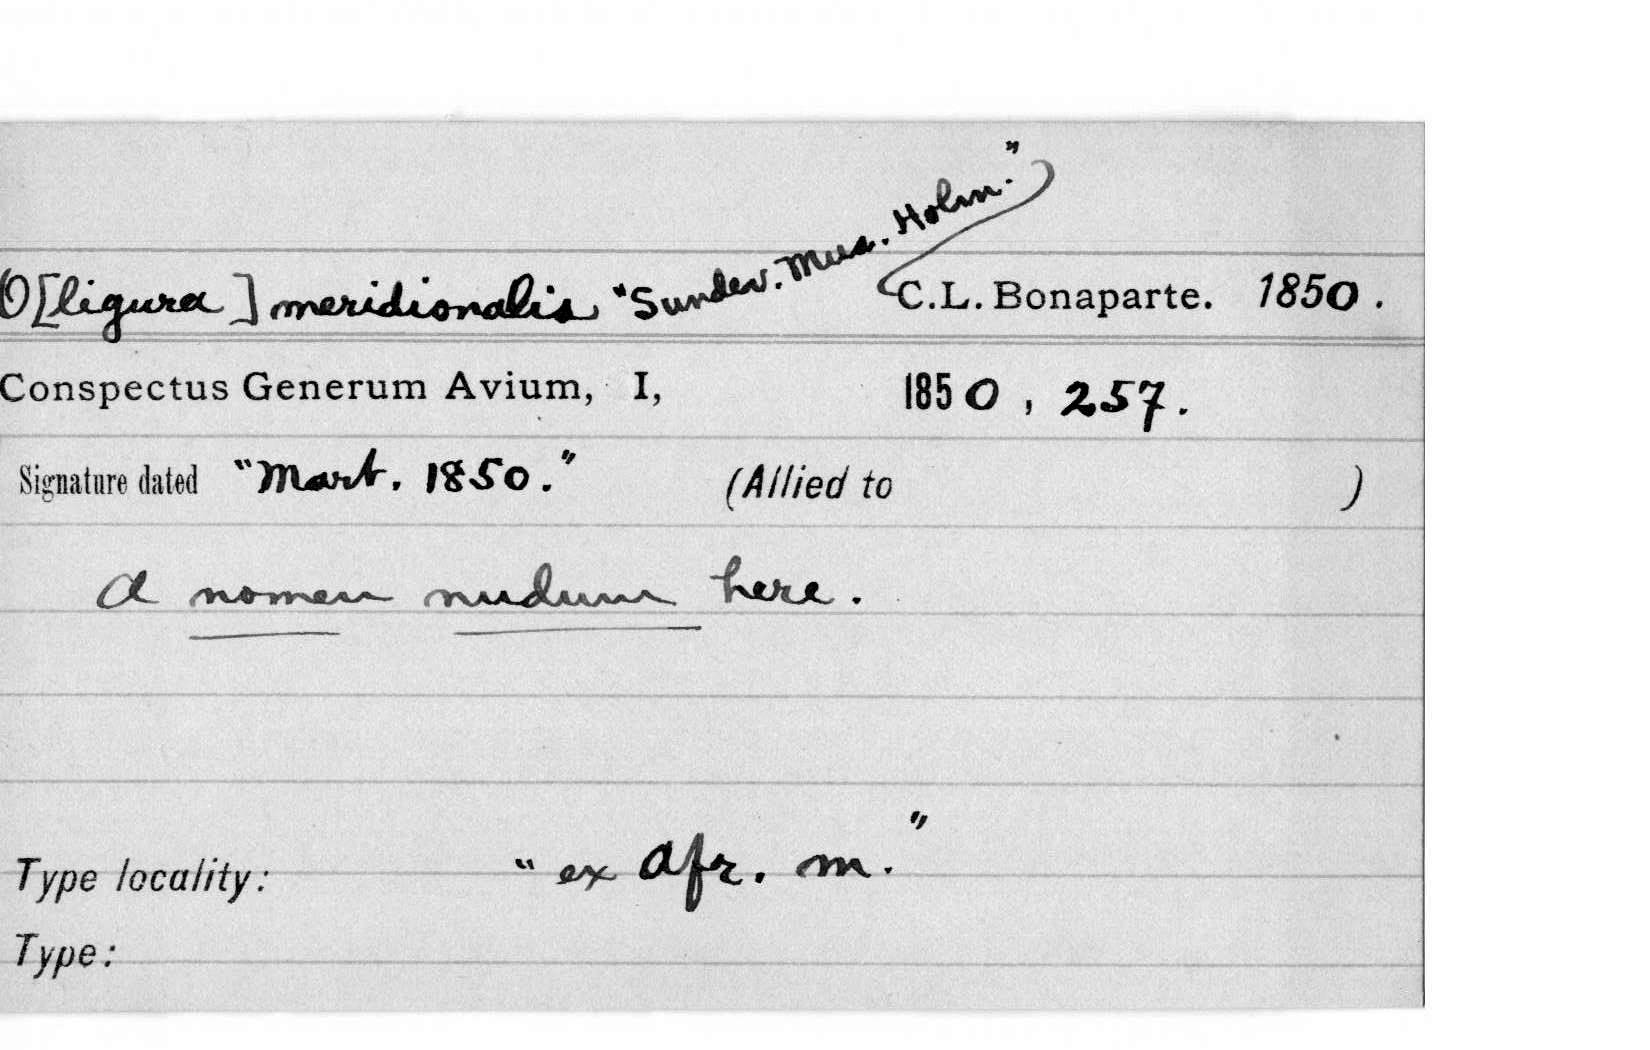 O[ligura] meridionalis "Sundev. Mus. Holm." C.L. Bonaparte. 1850.
Conspectus Generum Avium, I, 1850, 257.
Signature dated "Mart. 1850." (Allied to )
A nomen nudum here.
Type locality: "ex Afr. m."
Type: